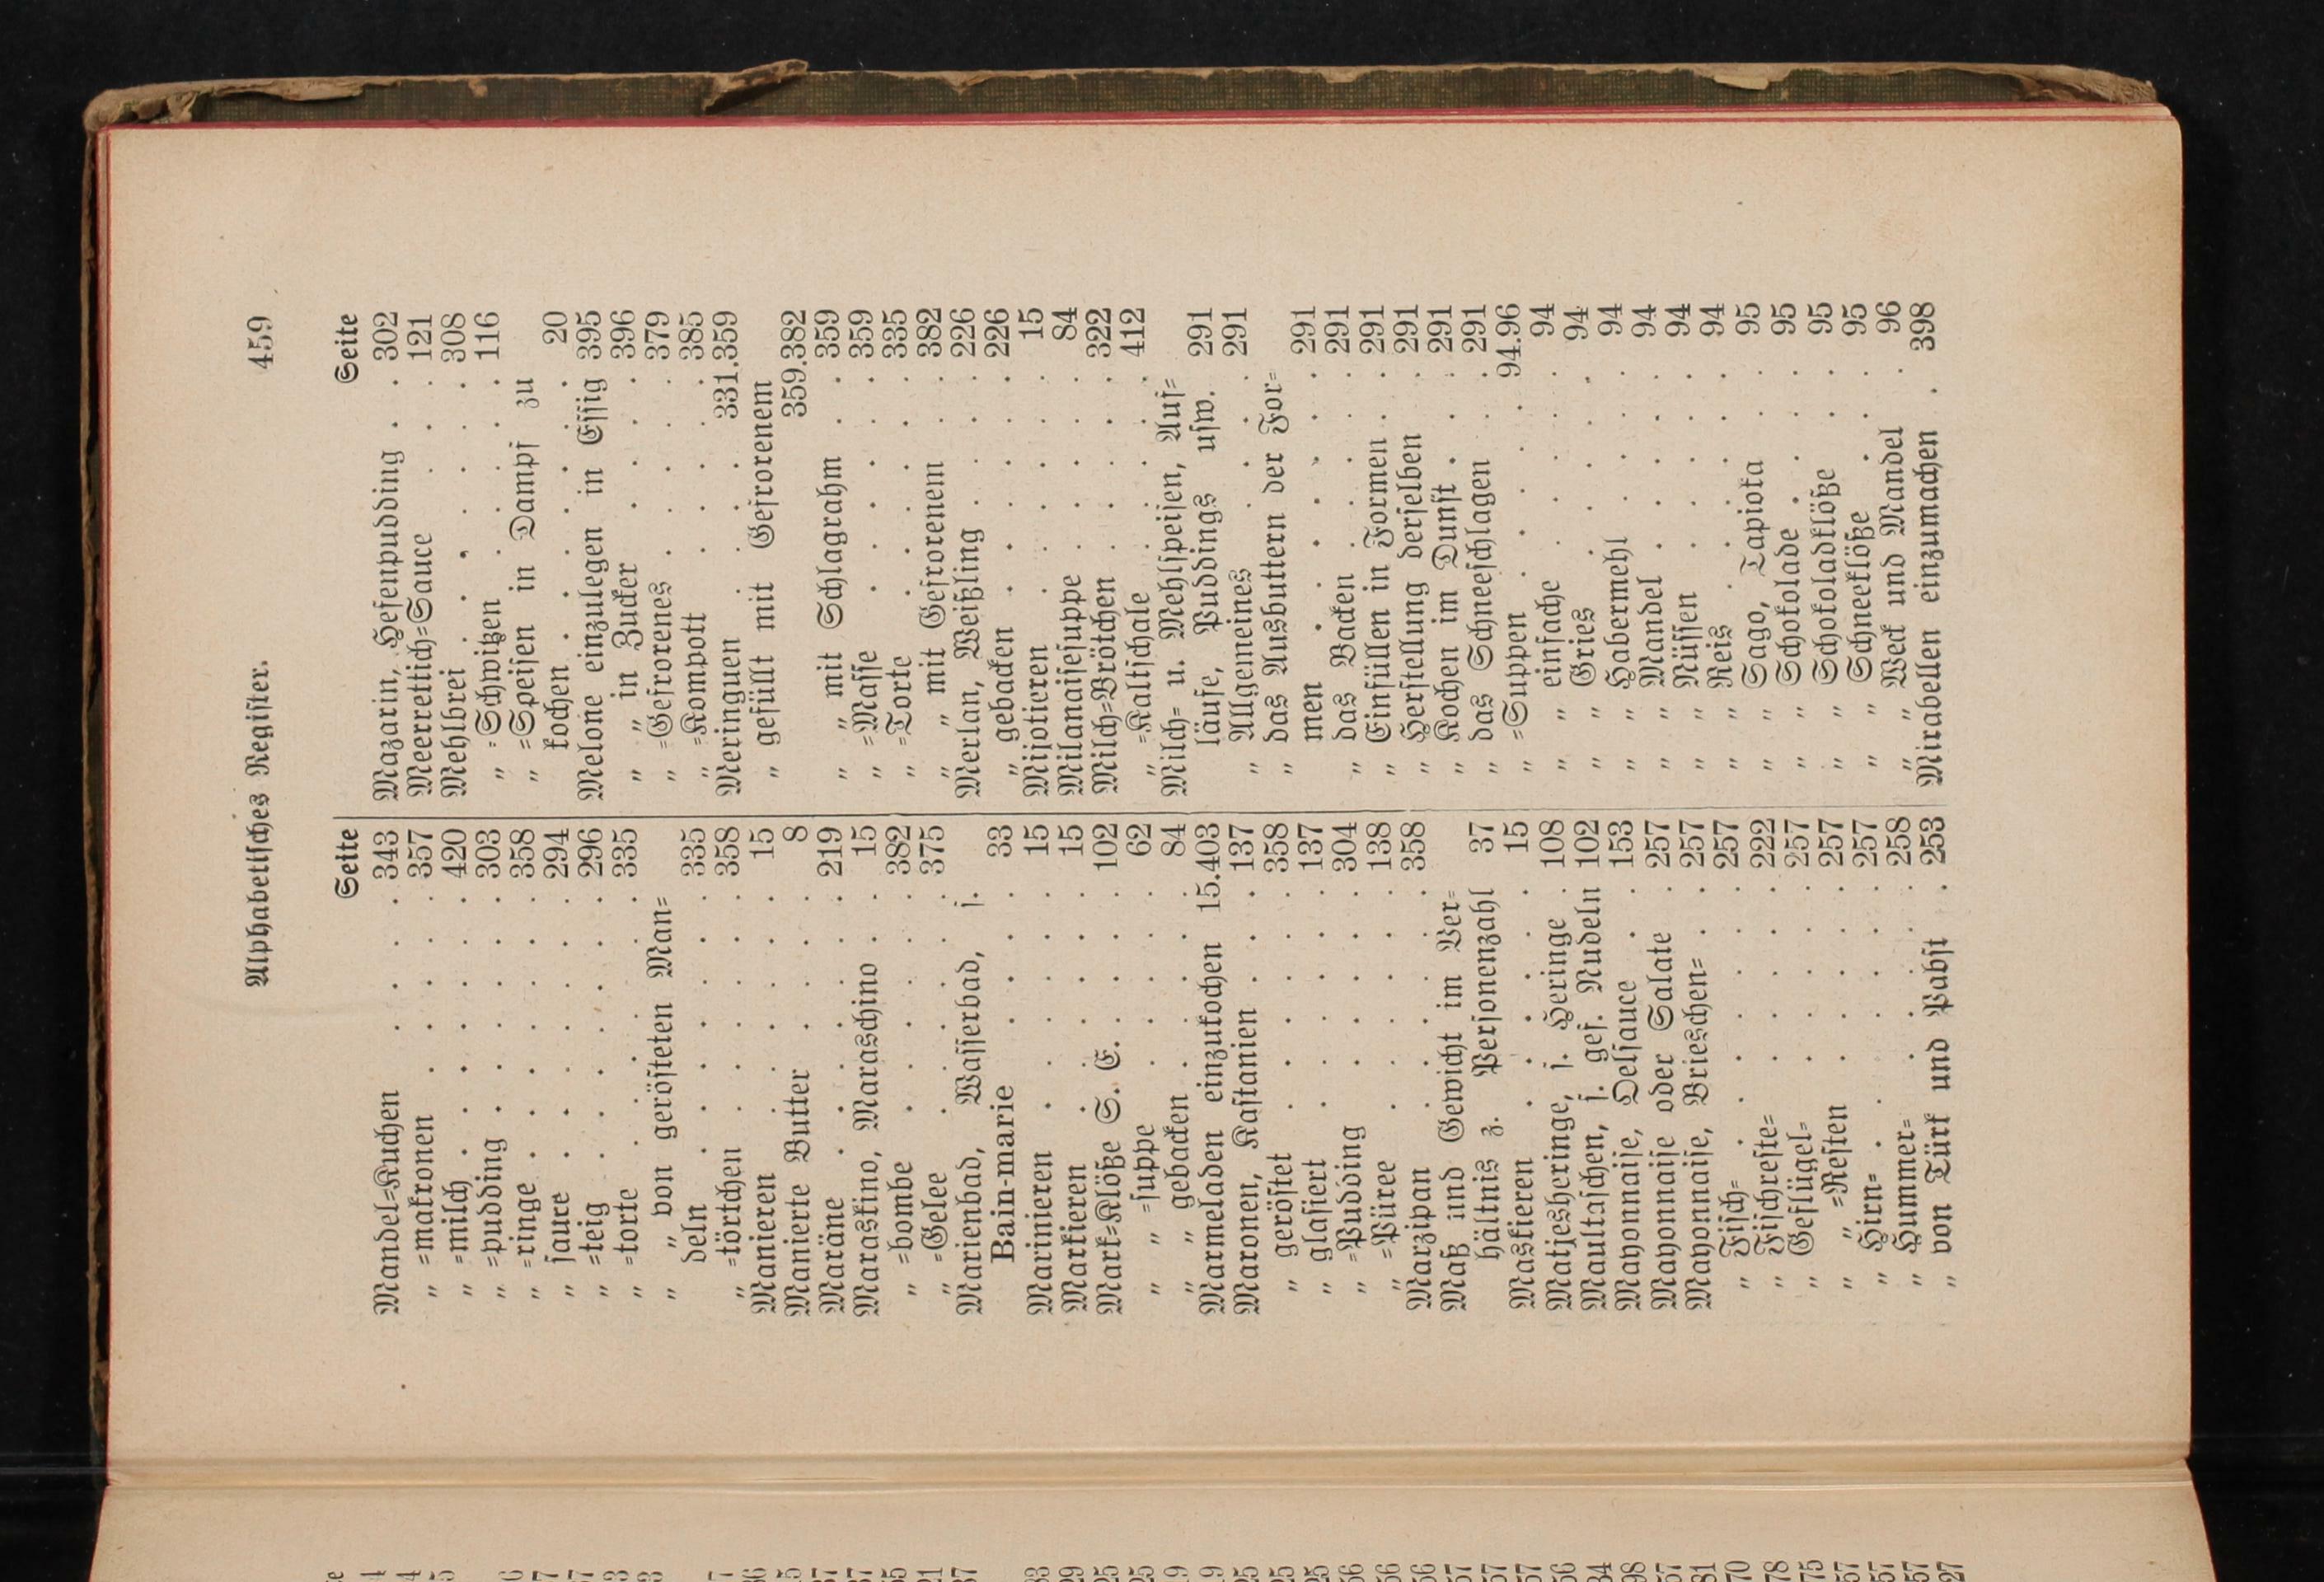 Alphabetisches Register. 459
Seite
Mandel=Kuchen . . . . . 343
„ =makronen . . . . . 357
„ =milch . . . . . . 420
„ =pudding . . . . . 303
„ =ringe . . . . . . 358
„ saure . . . . . . 294
„ =teig . . . . . . 296
„ =torte . . . . . . 335
„ „ von gerösteten Man=
deln . . . . . . 335
„ =törtchen . . . . . 358
Manieren . . . . . . 15
Manierte Butter . . . . . 8
Maräne . . . . . . . 219
Maraskino, Maraschino . . . 15
„ =bombe . . . . . 382
„ =Gelee . . . . . 375
Marienbad, Wasserbad, s.
Bain-marie . . . . . 33
Marinieren . . . . . . 15
Markieren . . . . . . 15
Mark=Klöße S. E. . . . . 102
„ „ =suppe . . . . . 62
„ „ gebacken . . . . . 84
Marmeladen einzukochen 15.403
Maronen, Kastanien . . . . 137
„ geröstet . . . . . 358
„ glasiert . . . . . 137
„ =Pudding . . . . . 304
„ =Püree . . . . . 138
Marzipan . . . . . . 358
Maß und Gewicht im Ver=
hältnis z. Personenzahl 37
Maskieren . . . . . . 15
Matjesheringe, s. Heringe . . 108
Maultaschen, s. gef. Nudeln 102
Mayonnaise, Oelsauce . . . 153
Mayonnaise oder Salate . . 257
Mayonnaise, Brieschen= . . 257
„ Fisch= . . . . . . 257
„ Fischreste= . . . . . 222
„ Geflügel= . . . . . 257
„ „ =Resten . . . . 257
„ Hirn= . . . . . . 257
„ Hummer= . . . . . 258
„ von Türk und Pabst . 253
Seite
Mazarin, Hefenpudding . . 302
Meerrettich=Sauce . . . 121
Mehlbrei . . . . . . 308
„ =Schwitzen . . . . . 116
„ =Speisen in Dampf zu
kochen . . . . . . 20
Melone einzulegen in Essig 395
„ „ in Zucker . . . . 396
„ =Gefrorenes . . . . 379
„ =Kompott . . . . . 385
Meringuen . . . . 331.359
„ gefüllt mit Gefrorenem
359.382
„ „ mit Schlagrahm . . 359
„ =Masse . . . . . . 359
„ =Torte . . . . . . 335
„ „ mit Gefrorenem . . 382
Merlan, Weißling . . . . 226
„ gebacken . . . . . . 226
Mijotieren . . . . . . 15
Milanaisesuppe . . . . . 84
Milch=Brötchen . . . . . 322
„ =Kaltschale . . . . . 412
Milch= u. Mehlspeisen, Auf=
läufe, Puddings usw. . 291
„ Allgemeines . . . . . 291
„ das Ausbuttern der For=
men . . . . . . . 291
„ das Backen . . . . . 291
„ Einfüllen in Formen . . 291
„ Herstellung derselben . . 291
„ Kochen im Dunst . . . 291
„ das Schneeschlagen . . 291
„ =Suppen . . . . . 94.96
„ „ einfache . . . . . 94
„ „ Gries . . . . . . 94
„ „ Habermehl . . . . 94
„ „ Mandel . . . . . 94
„ „ Nüssen . . . . . 94
„ „ Reis . . . . . . 94
„ „ Sago, Tapioka . . . 95
„ „ Schokolade . . . . 95
„ „ Schokoladklöße . . . 95
„ „ Schneeklöße . . . . 95
„ „ Weck und Mandel . . 96
Mirabellen einzumachen . . 398